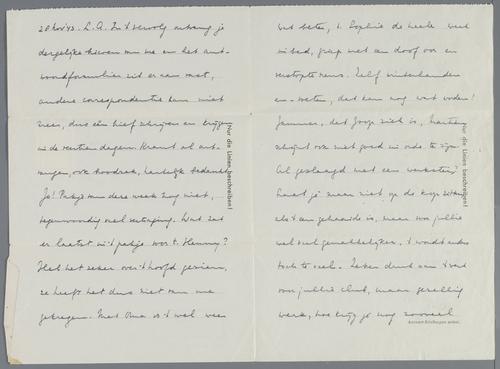 20 Nov '43. L.A. In 't vervolg ontvang je
dergelijke brieven van me en het ant-
woordformulier zit er aan vast,
andere correspondentie kan niet
meer, dus één brief schrijven en krijgen
in de veertien dagen. Krant al ont-
vangen, ook hartelijk bedankt
Ja! Pakje van deze week nog niet,
tegenwoordig veel vertraging. Wat zat
er laatst in 't pakje voor t. Hemmy?
Heb het zeker over 't hoofd gezien,
ze heeft het dus niet van me
gekregen. Met Oma is 't wel weer
Nur die Linien beschreiben!
wat beter, t. Sophie de heele week
in bed, griep met een doof oor en
verstopte neus. Zelf winterhanden
en -voeten, dat kan nog wat worden!
Jammer, dat Joop ziek is,
schijnt ook niet goed in orde te zijn.
Al geslaagd met een
haast je maar niet, op de
als 't een gehaaide is, maar voor jullie
wel veel gemakkelijker, 't wordt anders
toch te veel. Zeker druk aan 't werk
voor jullie club, maar gezellig
werk, hoe krijg je nog zooveel
Nur die Linien beschreiben!